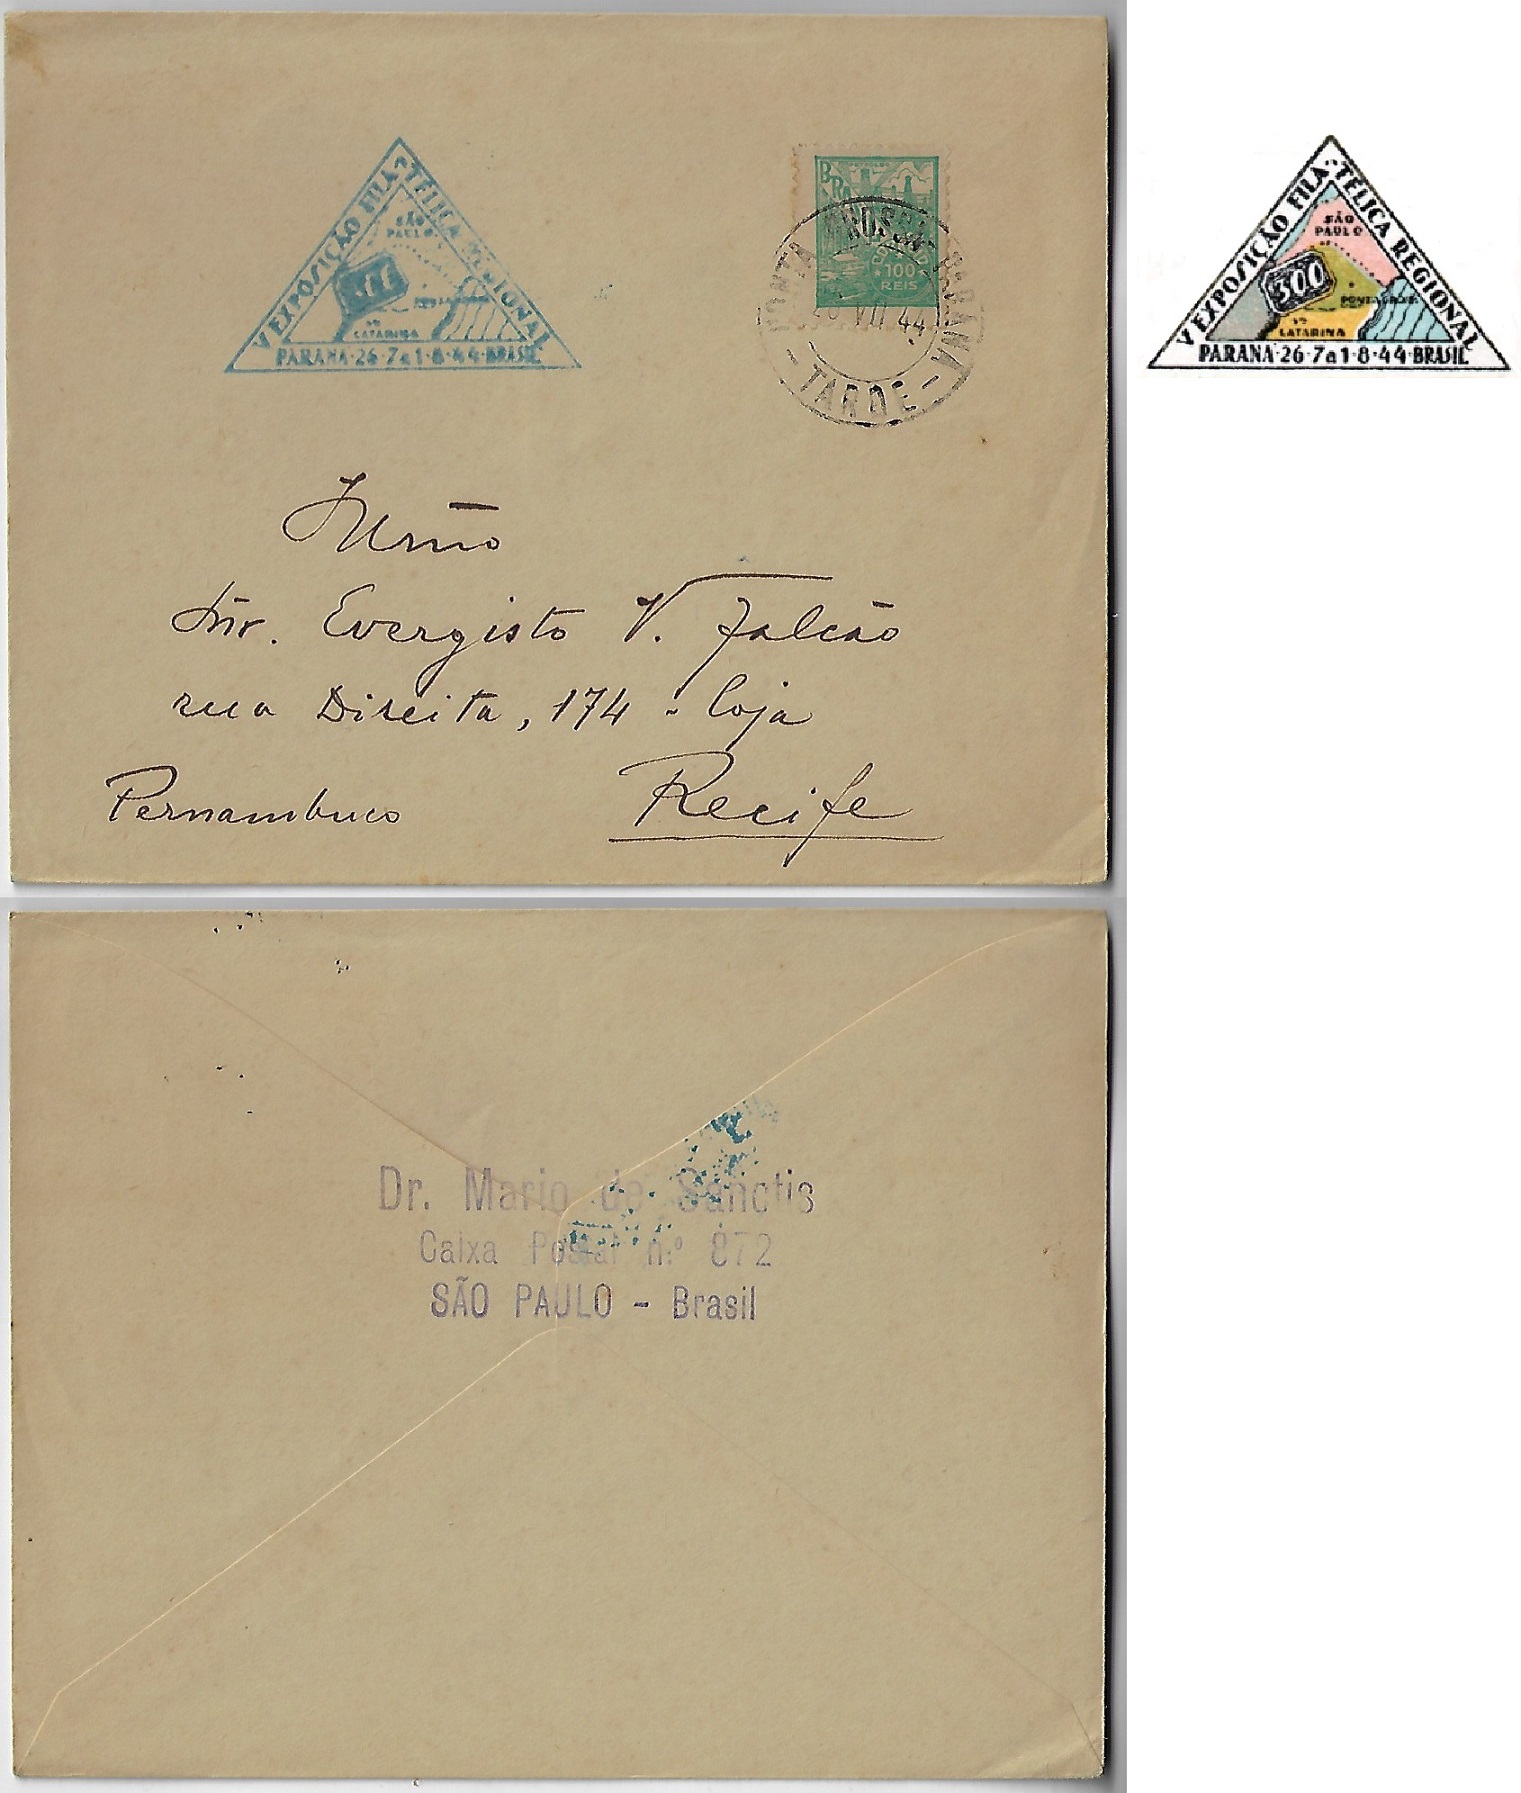 V EXPOSIÇÃO FILA-TÉLICA REGIONAL
SÃO
PAULO
CATARINA
PARANA·26·7a1·8·44·BRASIL
BRASIL
100
REIS
PONTA GROSSA-PARANA
VII 44
-TARDE-
Snr. Evergisto V. Falcão
rua Direita, 174 - Loja
Pernambuco Recife
V EXPOSIÇÃO FILA-TÉLICA REGIONAL
SÃO
PAULO
300
PONTA GROSSA
Sª
CATARINA
PARANA·26·7a1·8·44·BRASIL
Dr. Mario de Sanctis
Caixa Postal n.º 872
SÃO PAULO - Brasil